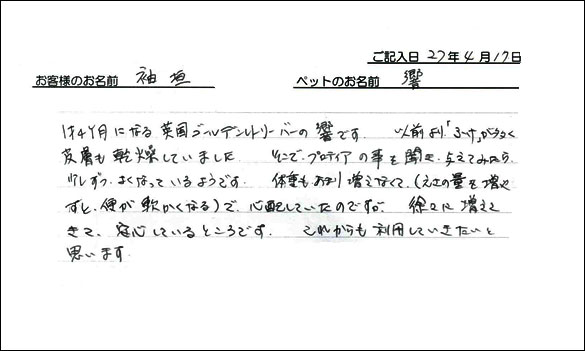 ご記入日 27年4月17日
お客様のお名前 袖垣 ペットのお名前 響
1才4ヶ月になる英国ゴールデンレトリーバーの響です。 以前より「ふけ」が多く
皮膚も乾燥していました。 そこで、プロティアの事を聞き、与えてみたら、
少しずつ、よくなっているようです。 体重もあまり増えなくて、(えさの量を増や
すと、便が軟かくなる)で、心配していたのですが、 徐々に増えて
きて、安心しているところです。 これからも利用していきたいと
思います。